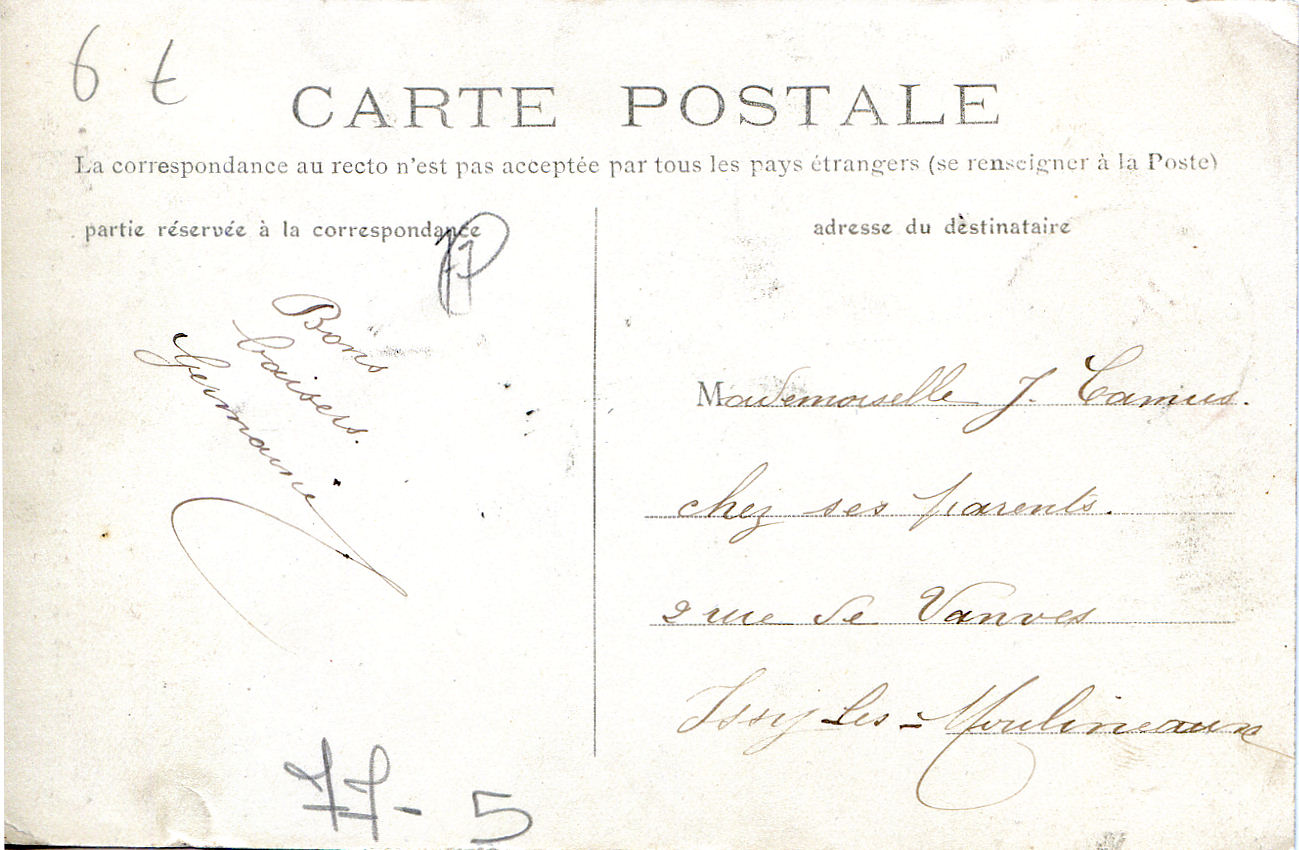 6 t
CARTE POSTALE
La correspondance au recto n'est pas acceptée par tous les pays étrangers (se renseigner à la Poste)
partie réservée à la correspondance
Bons
baisers.
Germaine
77-5
adresse du destinataire
Mademoiselle J. Camus.
chez ses parents.
2 rue de Vanves
Issy les-Moulineaux